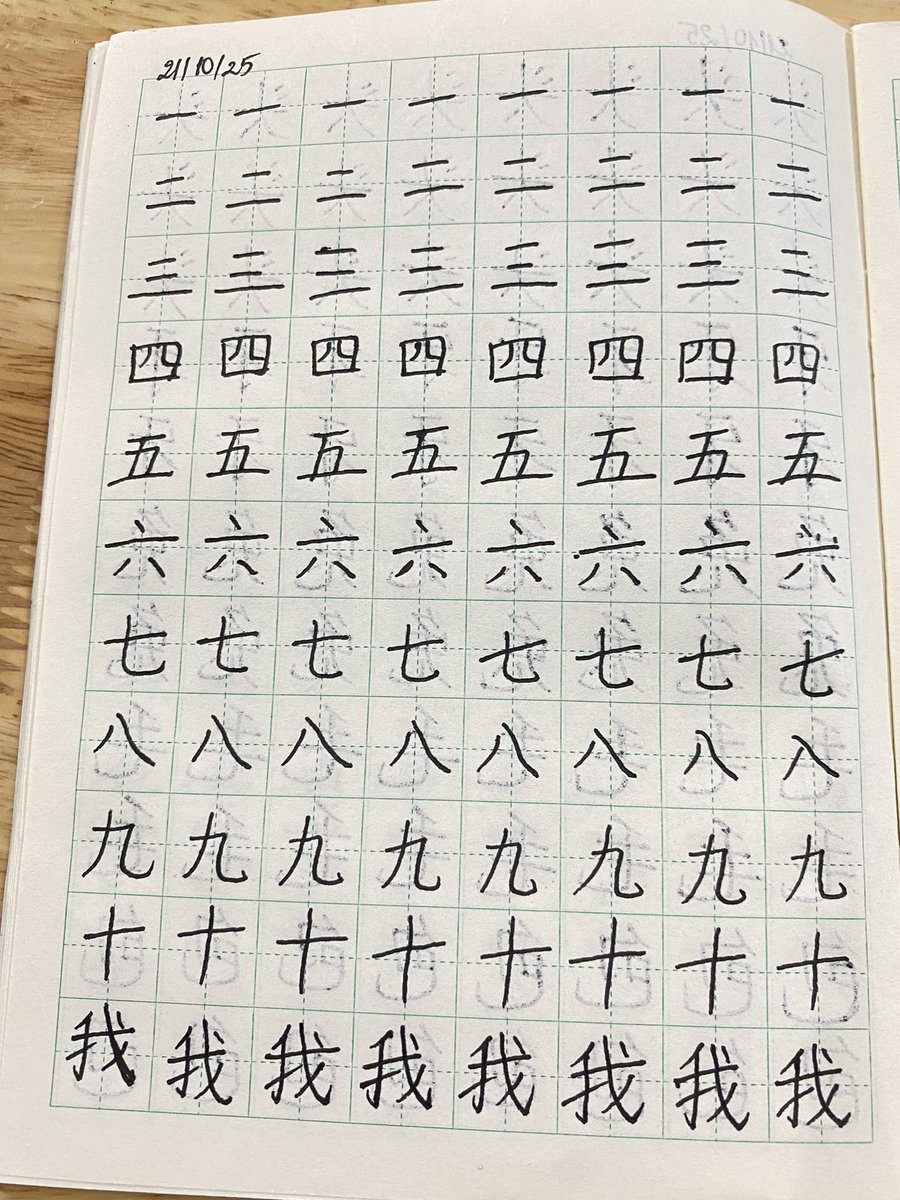 21/10/25
一 一 一 一 一 一 一 一
二 二 二 二 二 二 二 二
三 三 三 三 三 三 三 三
四 四 四 四 四 四 四 四
五 五 五 五 五 五 五 五
六 六 六 六 六 六 六 六
七 七 七 七 七 七 七 七
八 八 八 八 八 八 八 八
九 九 九 九 九 九 九 九
十 十 十 十 十 十 十 十
我 我 我 我 我 我 我 我